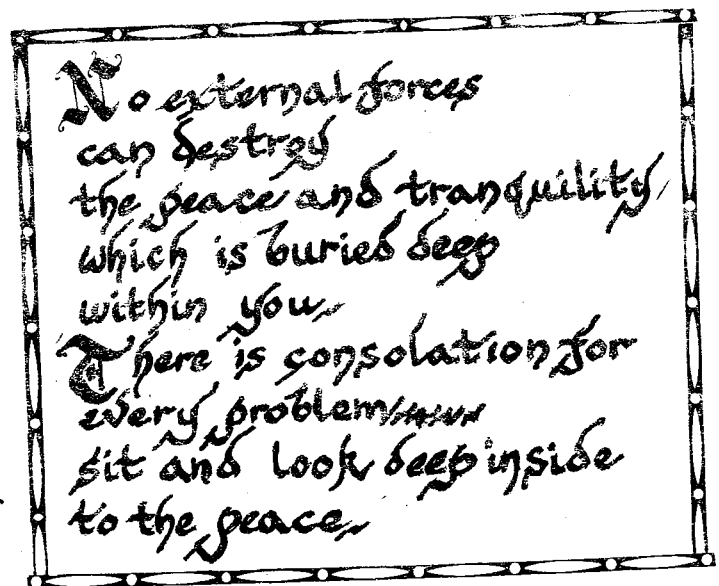 No external forces
can destroy
the peace and tranquility
which is buried deep
within you
There is consolation for
every problem
sit and look deep inside
to the peace